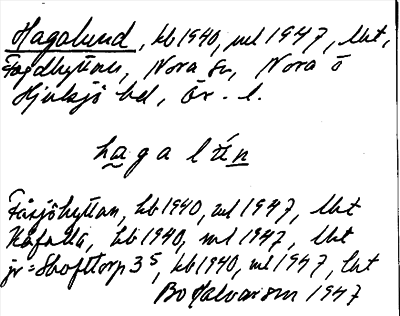 Hagalund, kb 1940, ml 1947, lht,
Nora sn, Nora ö
Hjulsjö bd, Ör. l.
h a g a l ú n
kb 1940, ml 1947, lht
Kåfalla, kb 1940, ml 1947, lht
jr = Skofttorp 3⁵, kb 1940, ml 1947, lht
Bo Halvarson 1947